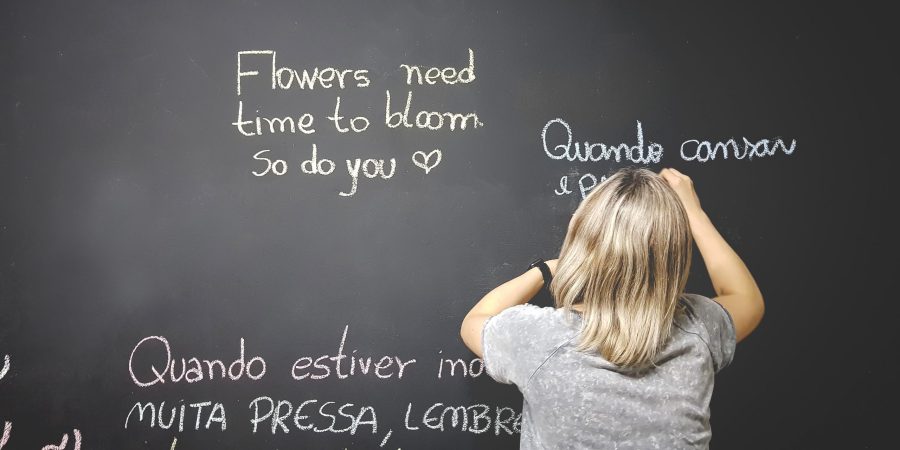 Flowers need
time to bloom.
So do you ♡
Quando cansar
e
Quando estiver
MUITA PRESSA, LEMBRE